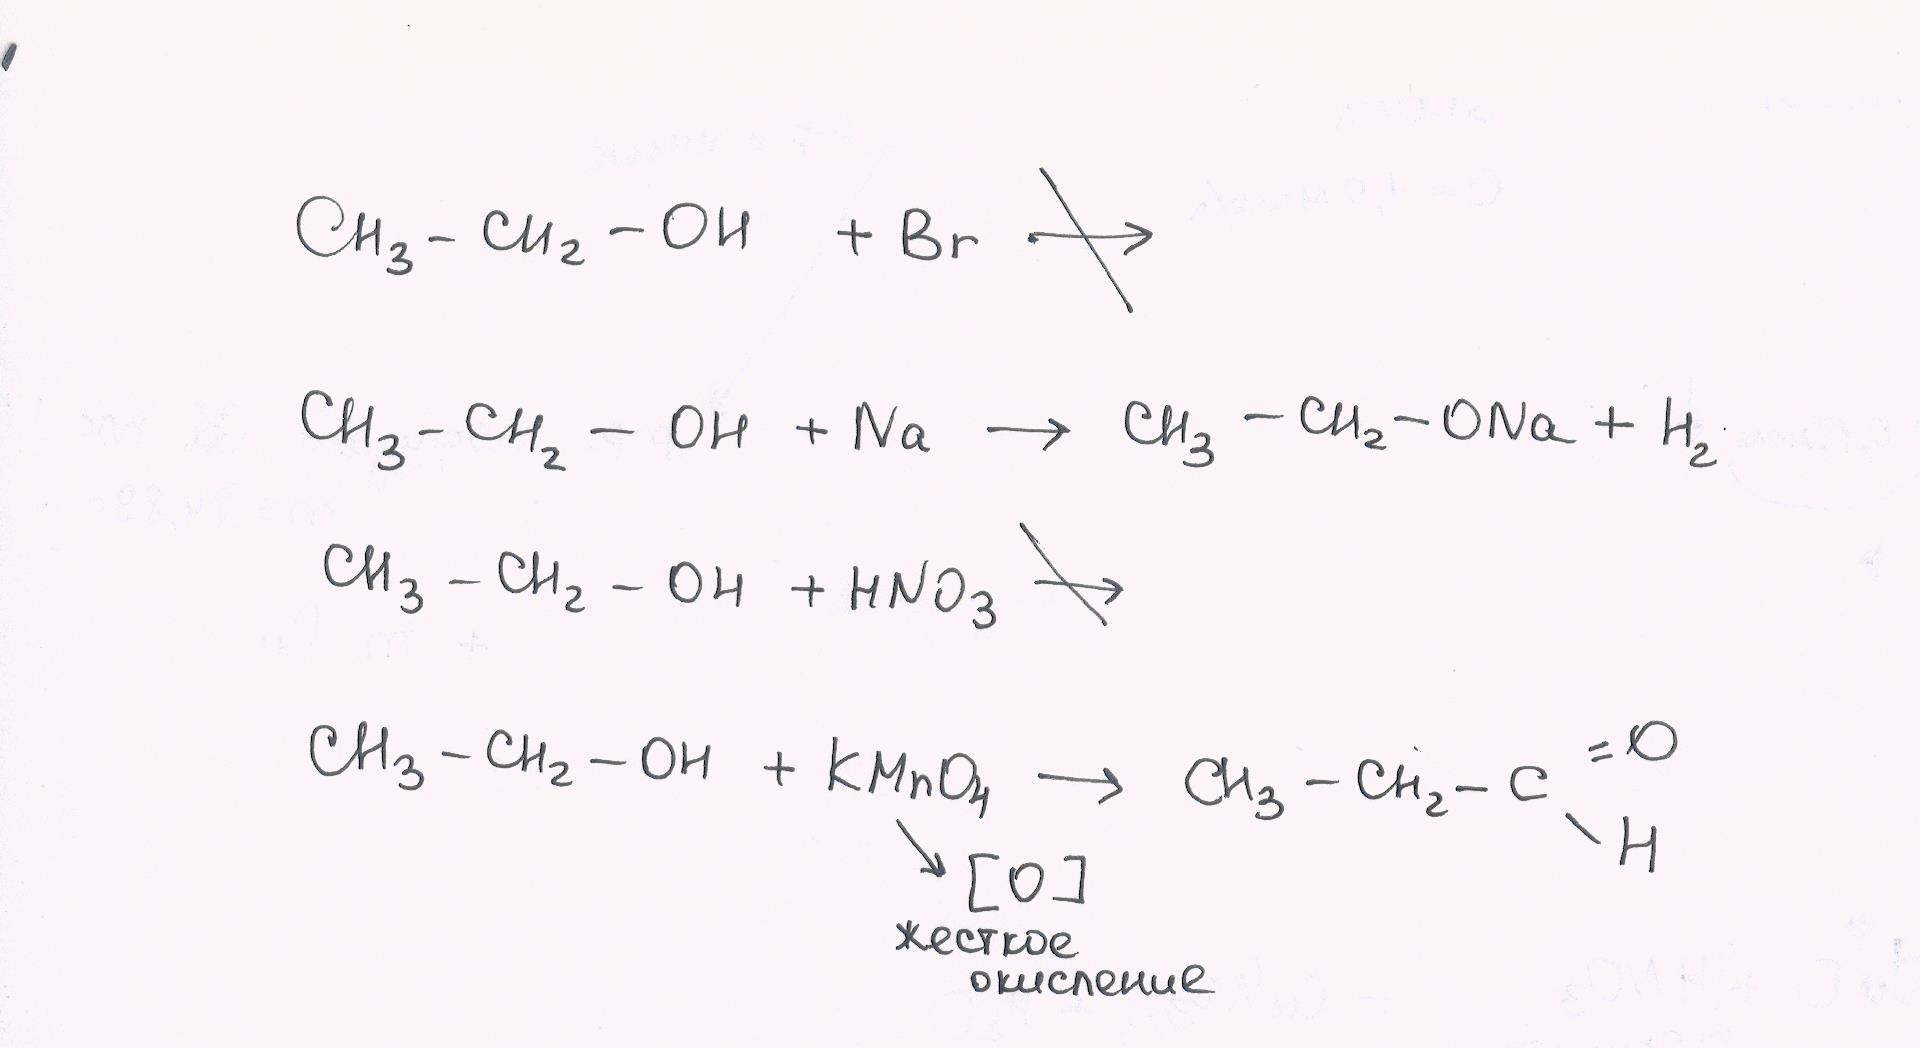 CH3 - CH2 - OH + Br →
CH3 - CH2 - OH + Na → CH3 - CH2 - ONa + H2
CH3 - CH2 - OH + HNO3 →
CH3 - CH2 - OH + KMnO4 → CH3 - CH2 - C =O
\ H
↘ [O]
жесткое
окисление